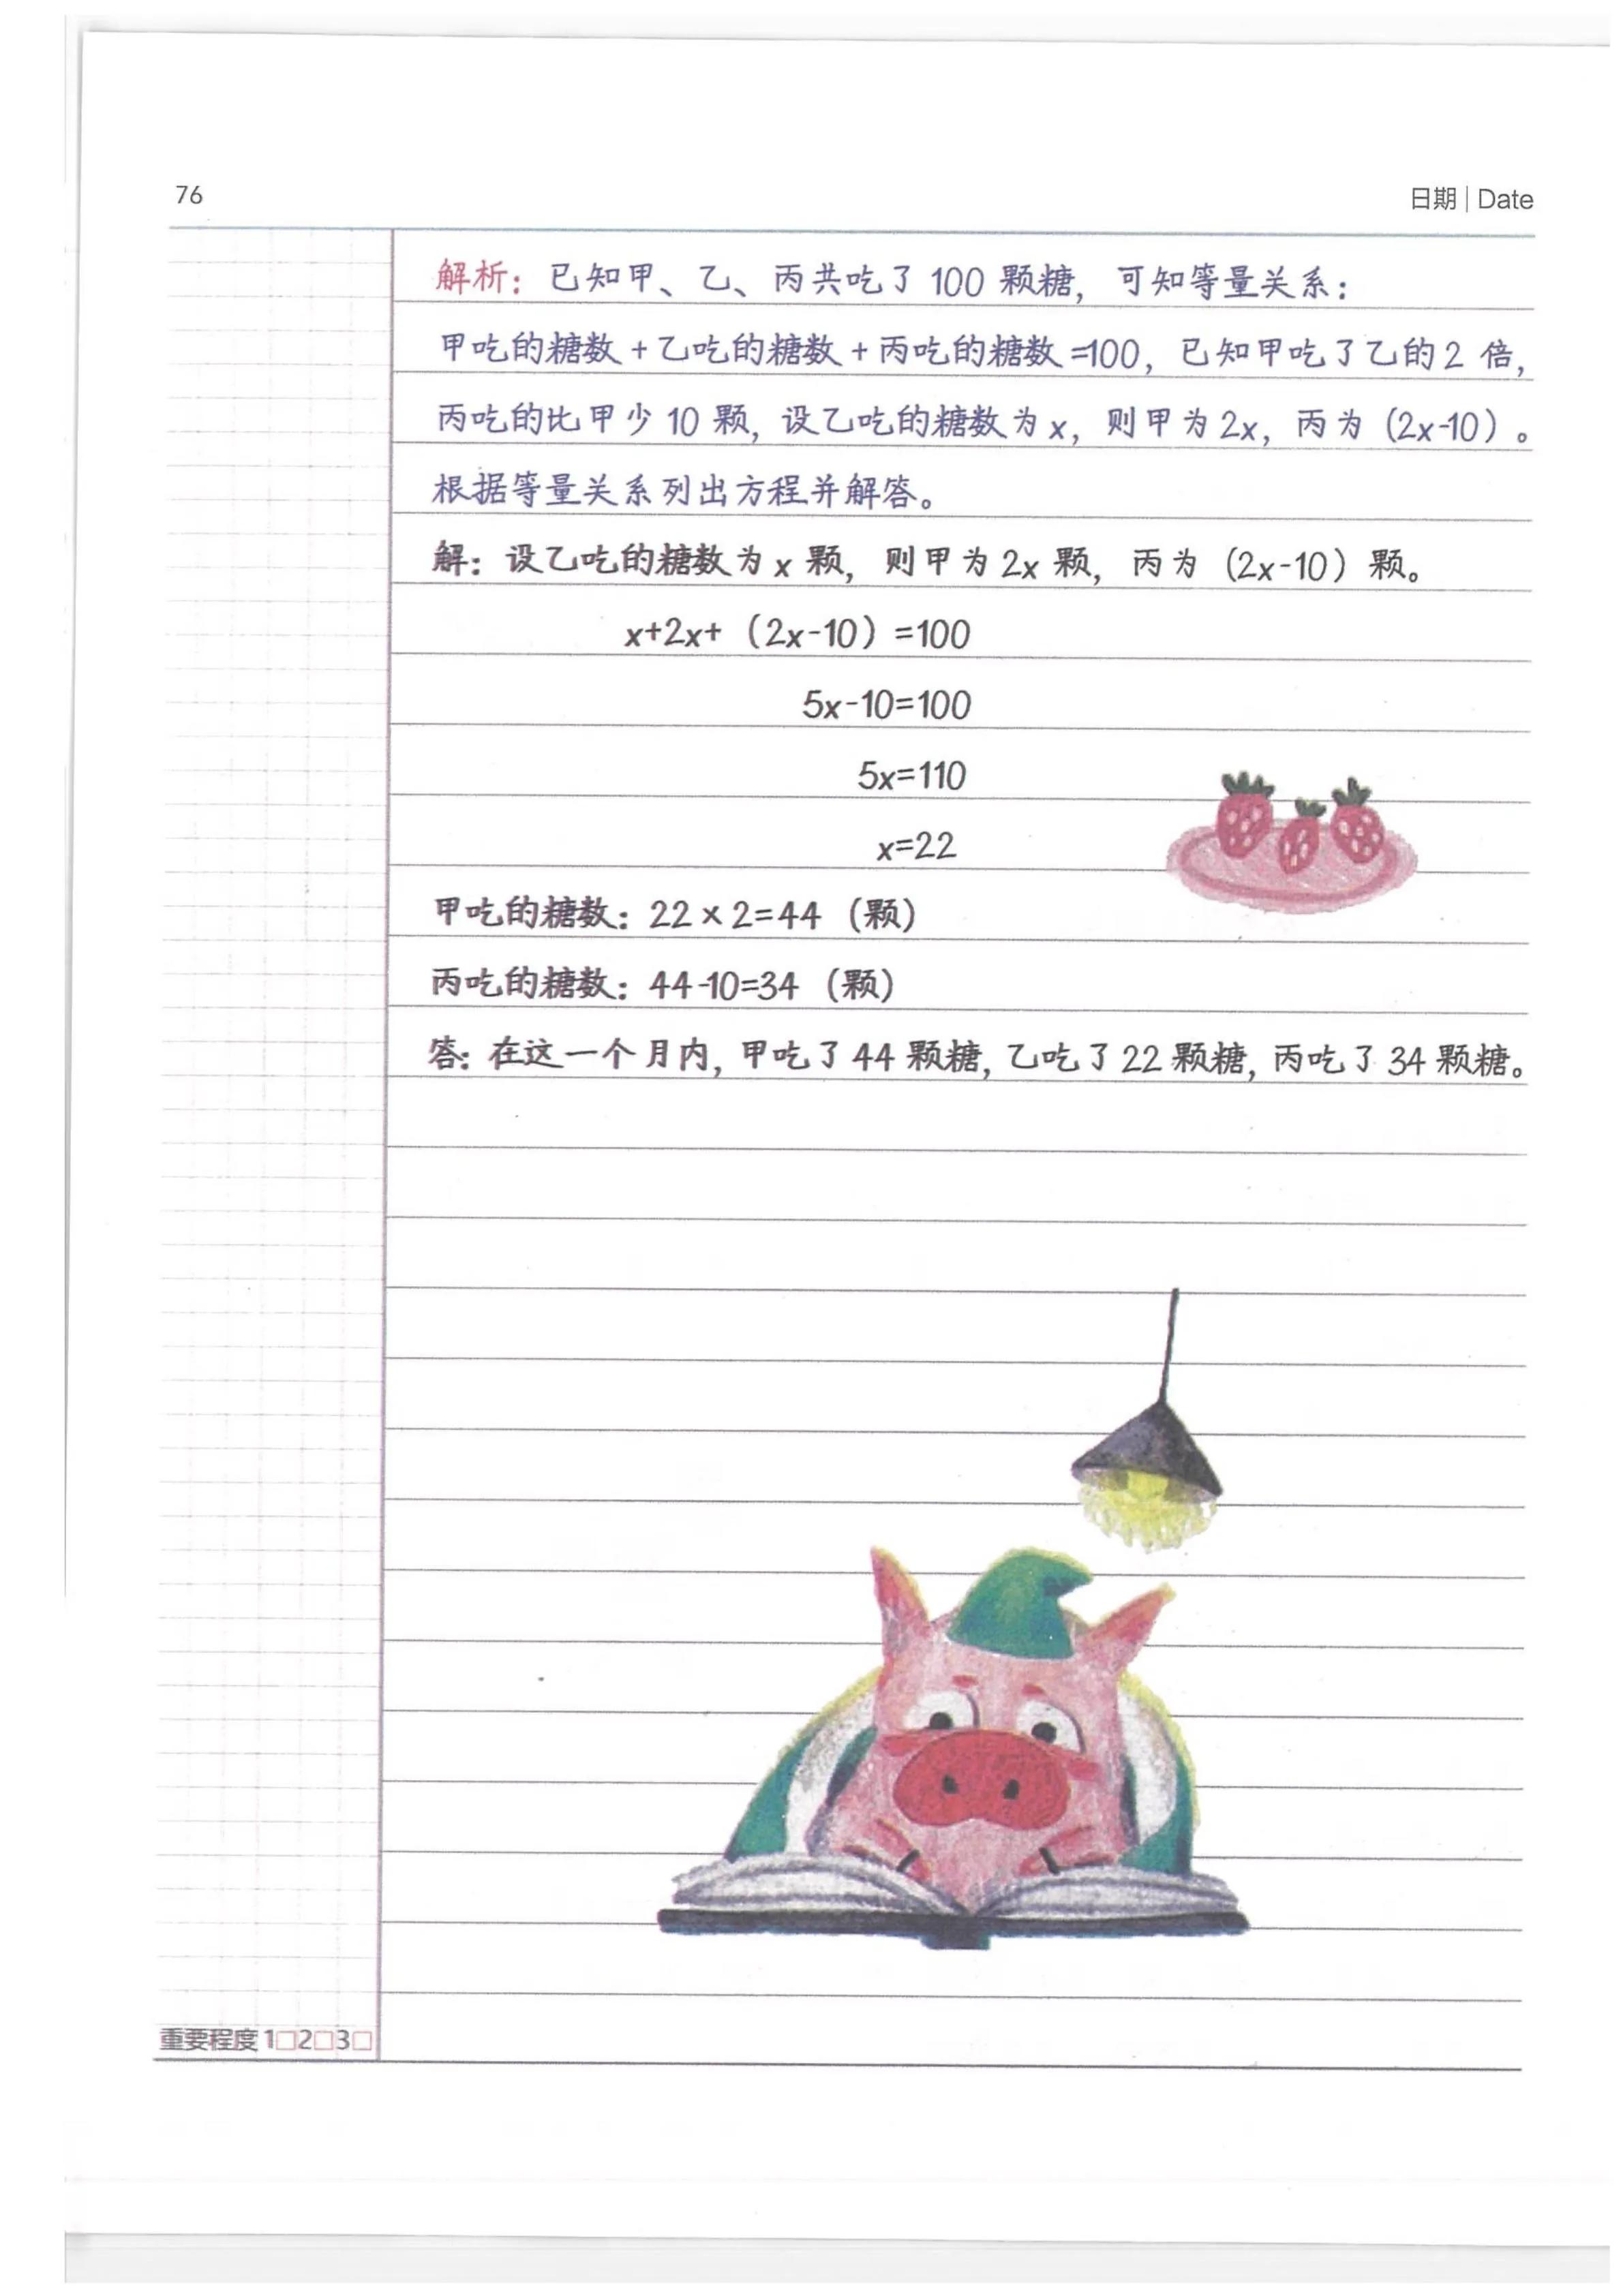 76
日期 | Date
解析：已知甲、乙、丙共吃了 100 颗糖，可知等量关系：
甲吃的糖数 + 乙吃的糖数 + 丙吃的糖数 =100，已知甲吃了乙的 2 倍，
丙吃的比甲少 10 颗，设乙吃的糖数为 x，则甲为 2x，丙为（2x-10）。
根据等量关系列出方程并解答。
解：设乙吃的糖数为 x 颗，则甲为 2x 颗，丙为（2x-10）颗。
x+2x+（2x-10）=100
5x-10=100
5x=110
x=22
甲吃的糖数：22 × 2=44（颗）
丙吃的糖数：44-10=34（颗）
答：在这一个月内，甲吃了 44 颗糖，乙吃了 22 颗糖，丙吃了 34 颗糖。
重要程度 1□2□3□